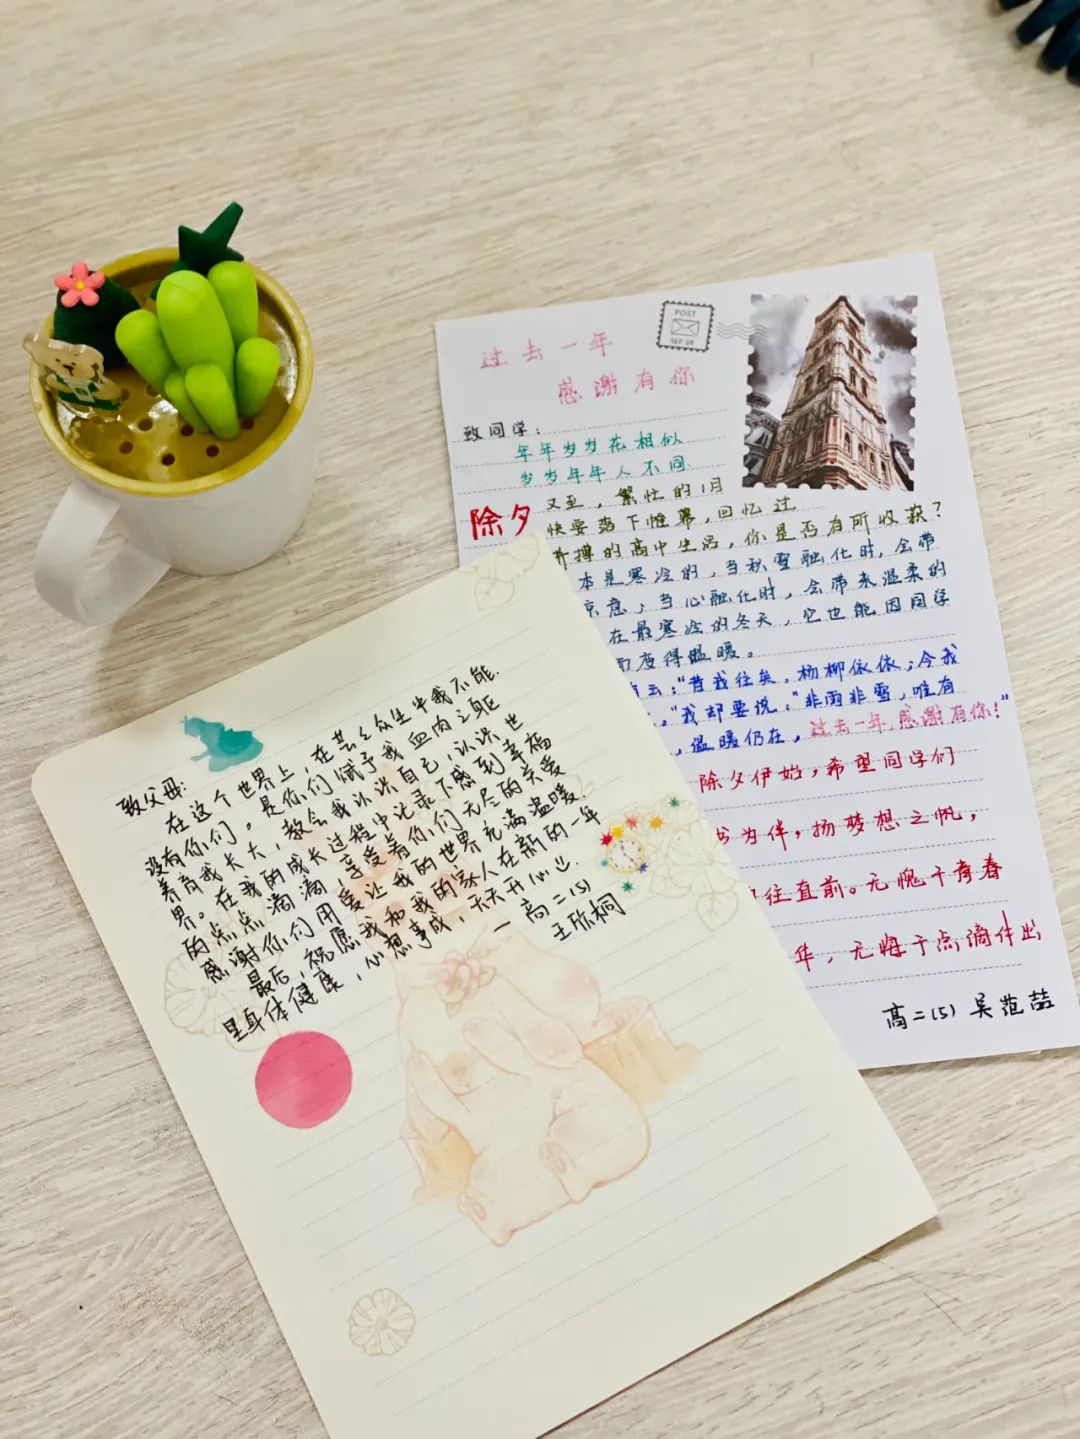 过去一年
感谢有你
POST
SEP 08
致同学:
年年岁岁花相似
岁岁年年人不同.
除夕又至，繁忙的1月
快要落下帷幕,回忆过
拼搏的高中生活，你是否有所收获?
本是寒冷的，当秋雪融化时，会带
凉意；当心融化时，会带来温柔的
在最寒冷的冬天，它也能因同学
而变得温暖。
有云:"昔我往矣，杨柳依依；今我
。"我却要说:"非雨非雪，唯有
，温暖仍在，过去一年,感谢有你!"
除夕伊始，希望同学们
书为伴，扬梦想之帆，
往直前。无愧于青春
华，无悔于点滴付出
高二(5) 吴范喆
致父母:
在这个世界上，在芸芸众生中我不能
没有你们。是你们赋予我血肉之躯
养育我长大，教会我认识自己，认识世
界。在我的成长过程中记录下感到幸福
的点点滴滴，享受着你们无尽的关爱
感谢你们用爱让我的世界充满温暖.
最后，祝愿我和我的家人在新的一年
里身体健康，心想事成，天天开心
— 高二(5)
王欣桐